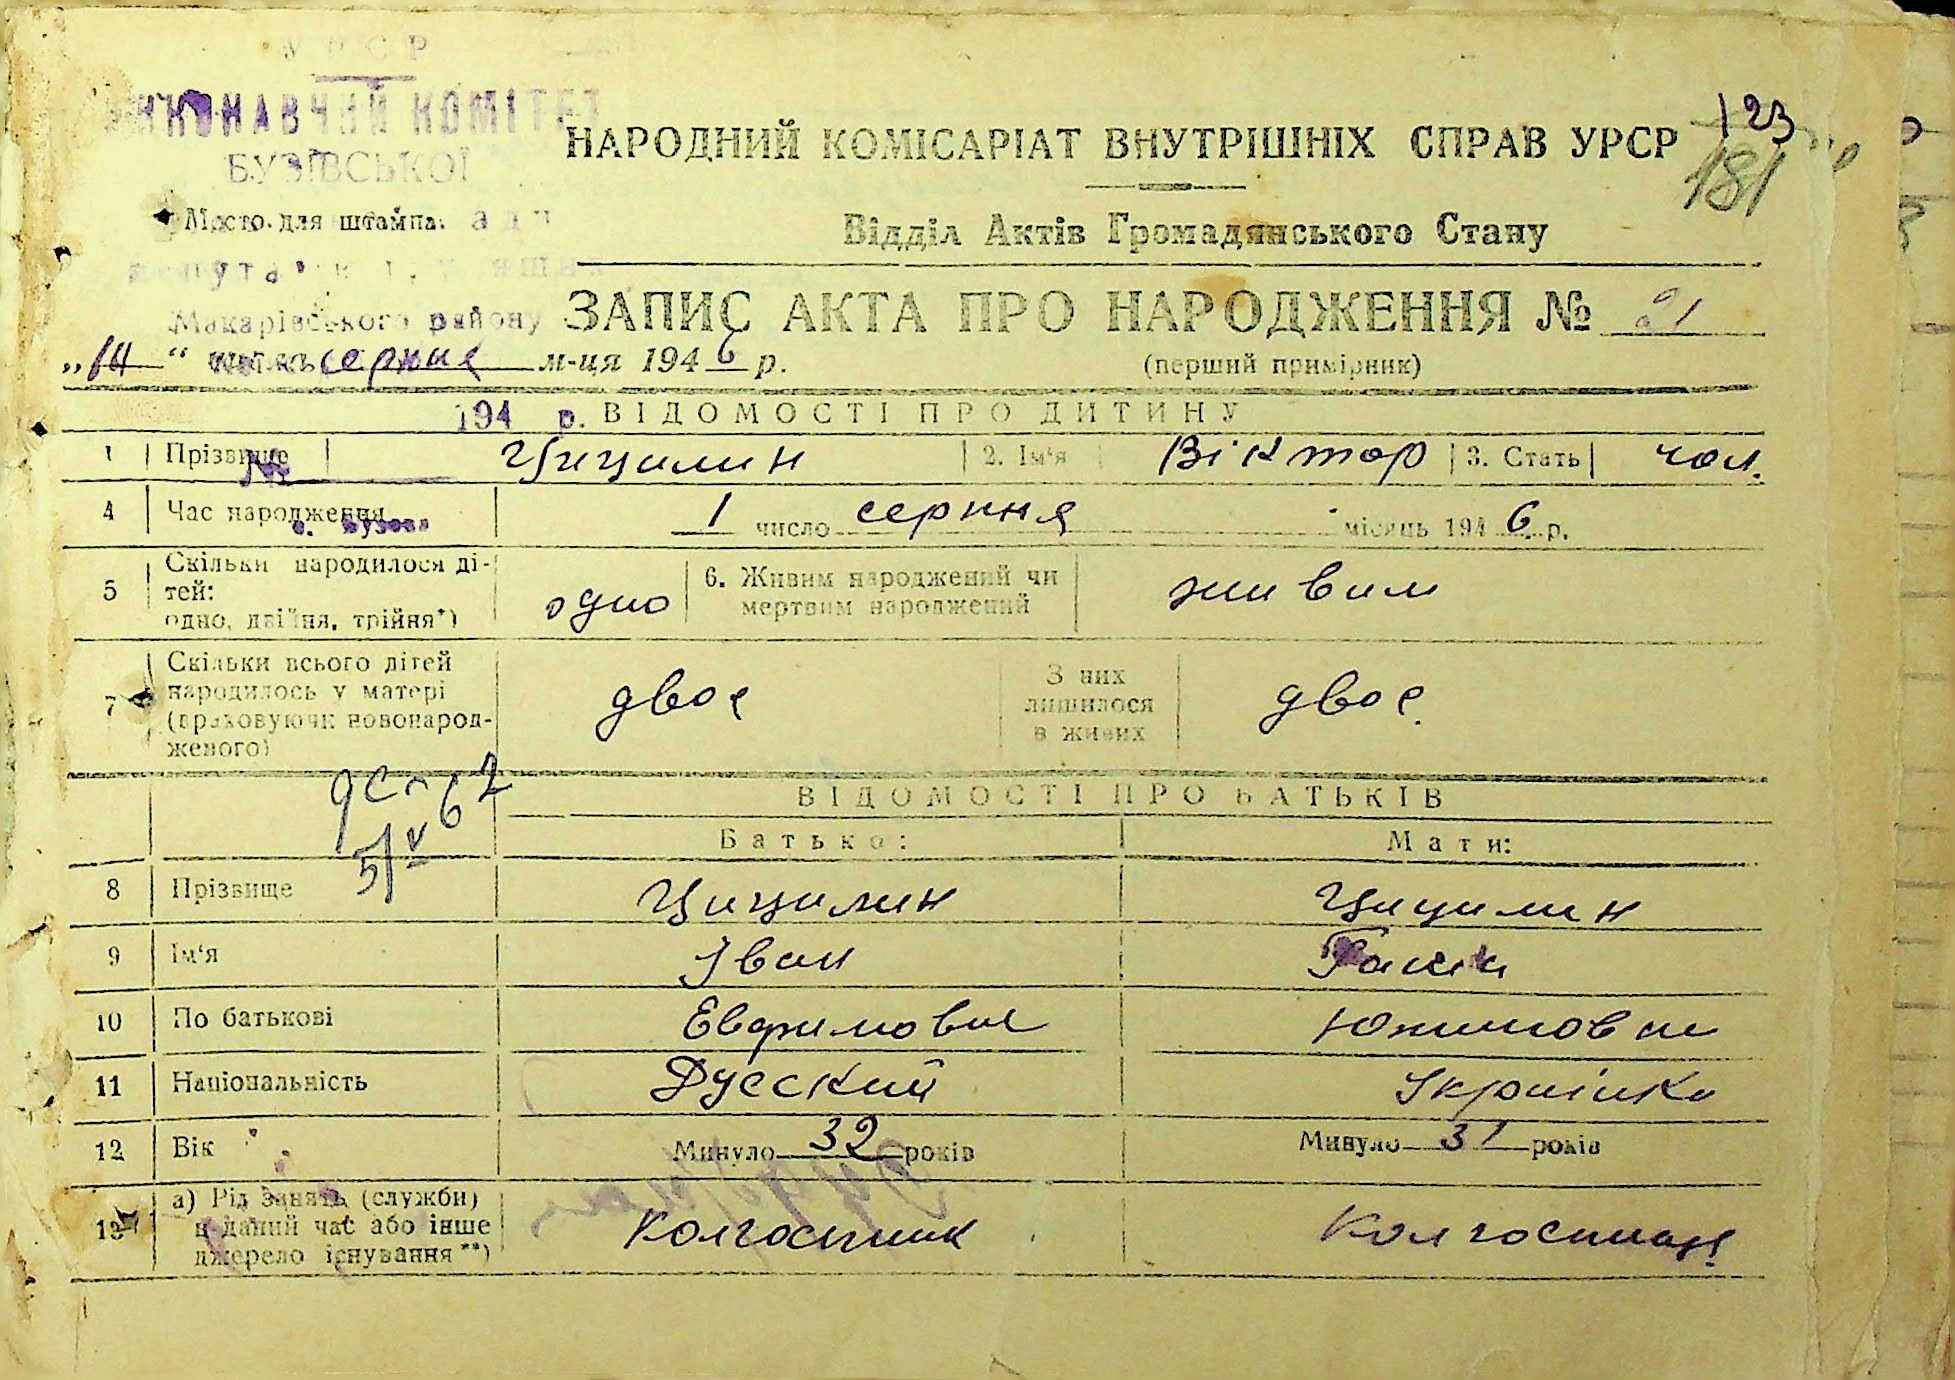 УРСР
ВИКОНАВЧИЙ КОМІТЕТ
БУЗІВСЬКОЇ
123
181
НАРОДНИЙ КОМІСАРІАТ ВНУТРІШНІХ СПРАВ УРСР
Місто для штампа
Відділ Актів Громадянського Стану
Макарівського району
ЗАПИС АКТА ПРО НАРОДЖЕННЯ №
„14“ серпня м-ця 1946 р.
(перший примірник)
194 р.
ВІДОМОСТІ ПРО ДИТИНУ
1 Прізвище Цицилин 2. Ім'я Віктор 3. Стать чол.
№
4 Час народження 1 число серпня місяць 1946 р.
с. Бузова
5 Скільки народилося ді-
тей:
одно, двійня, трійня*) одно 6. Живим народжений чи
мертвим народжений живим
7 Скільки всього дітей
народилось у матері
(враховуючи новонарод-
женого) двоє З них
лишилося
в живих двоє
ВІДОМОСТІ ПРО БАТЬКІВ
Батько: Мати:
8 Прізвище Цицилин Цицилин
9 Ім'я Іван
10 По батькові
11 Національність Русский Українка
12 Вік Минуло 32 років Минуло 31 років
13 а) Рід занять (служби)
в даний час або інше
джерело існування**) Колгоспник